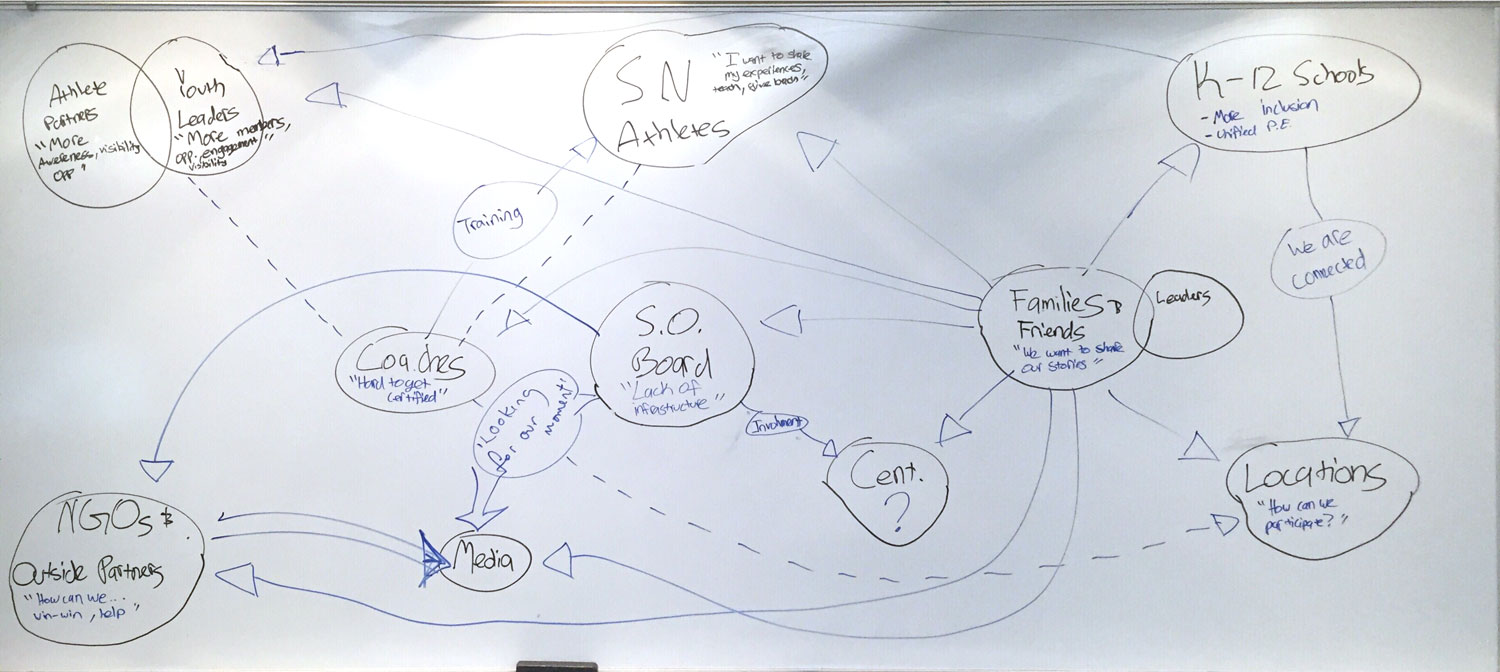 Athlete
Partners
"More
Awareness, visibility
OPP"
Youth
Leaders
"More members,
OPP. engagement",
visibility
SN
Athletes
"I want to share
my experiences,
teach, give back"
K-12 Schools
- More inclusion
- Unified P.E.
Training
We are
connected
Families &
Friends
"We want to share
our stories"
Leaders
S.O.
Board
"Lack of
infrastructure"
Coaches
"Hard to get
certified"
"Looking
for our
moment"
Cent.
?
Locations
"How can we
participate?"
NGOs &
Outside Partners
"How can we...
win-win, help"
Media